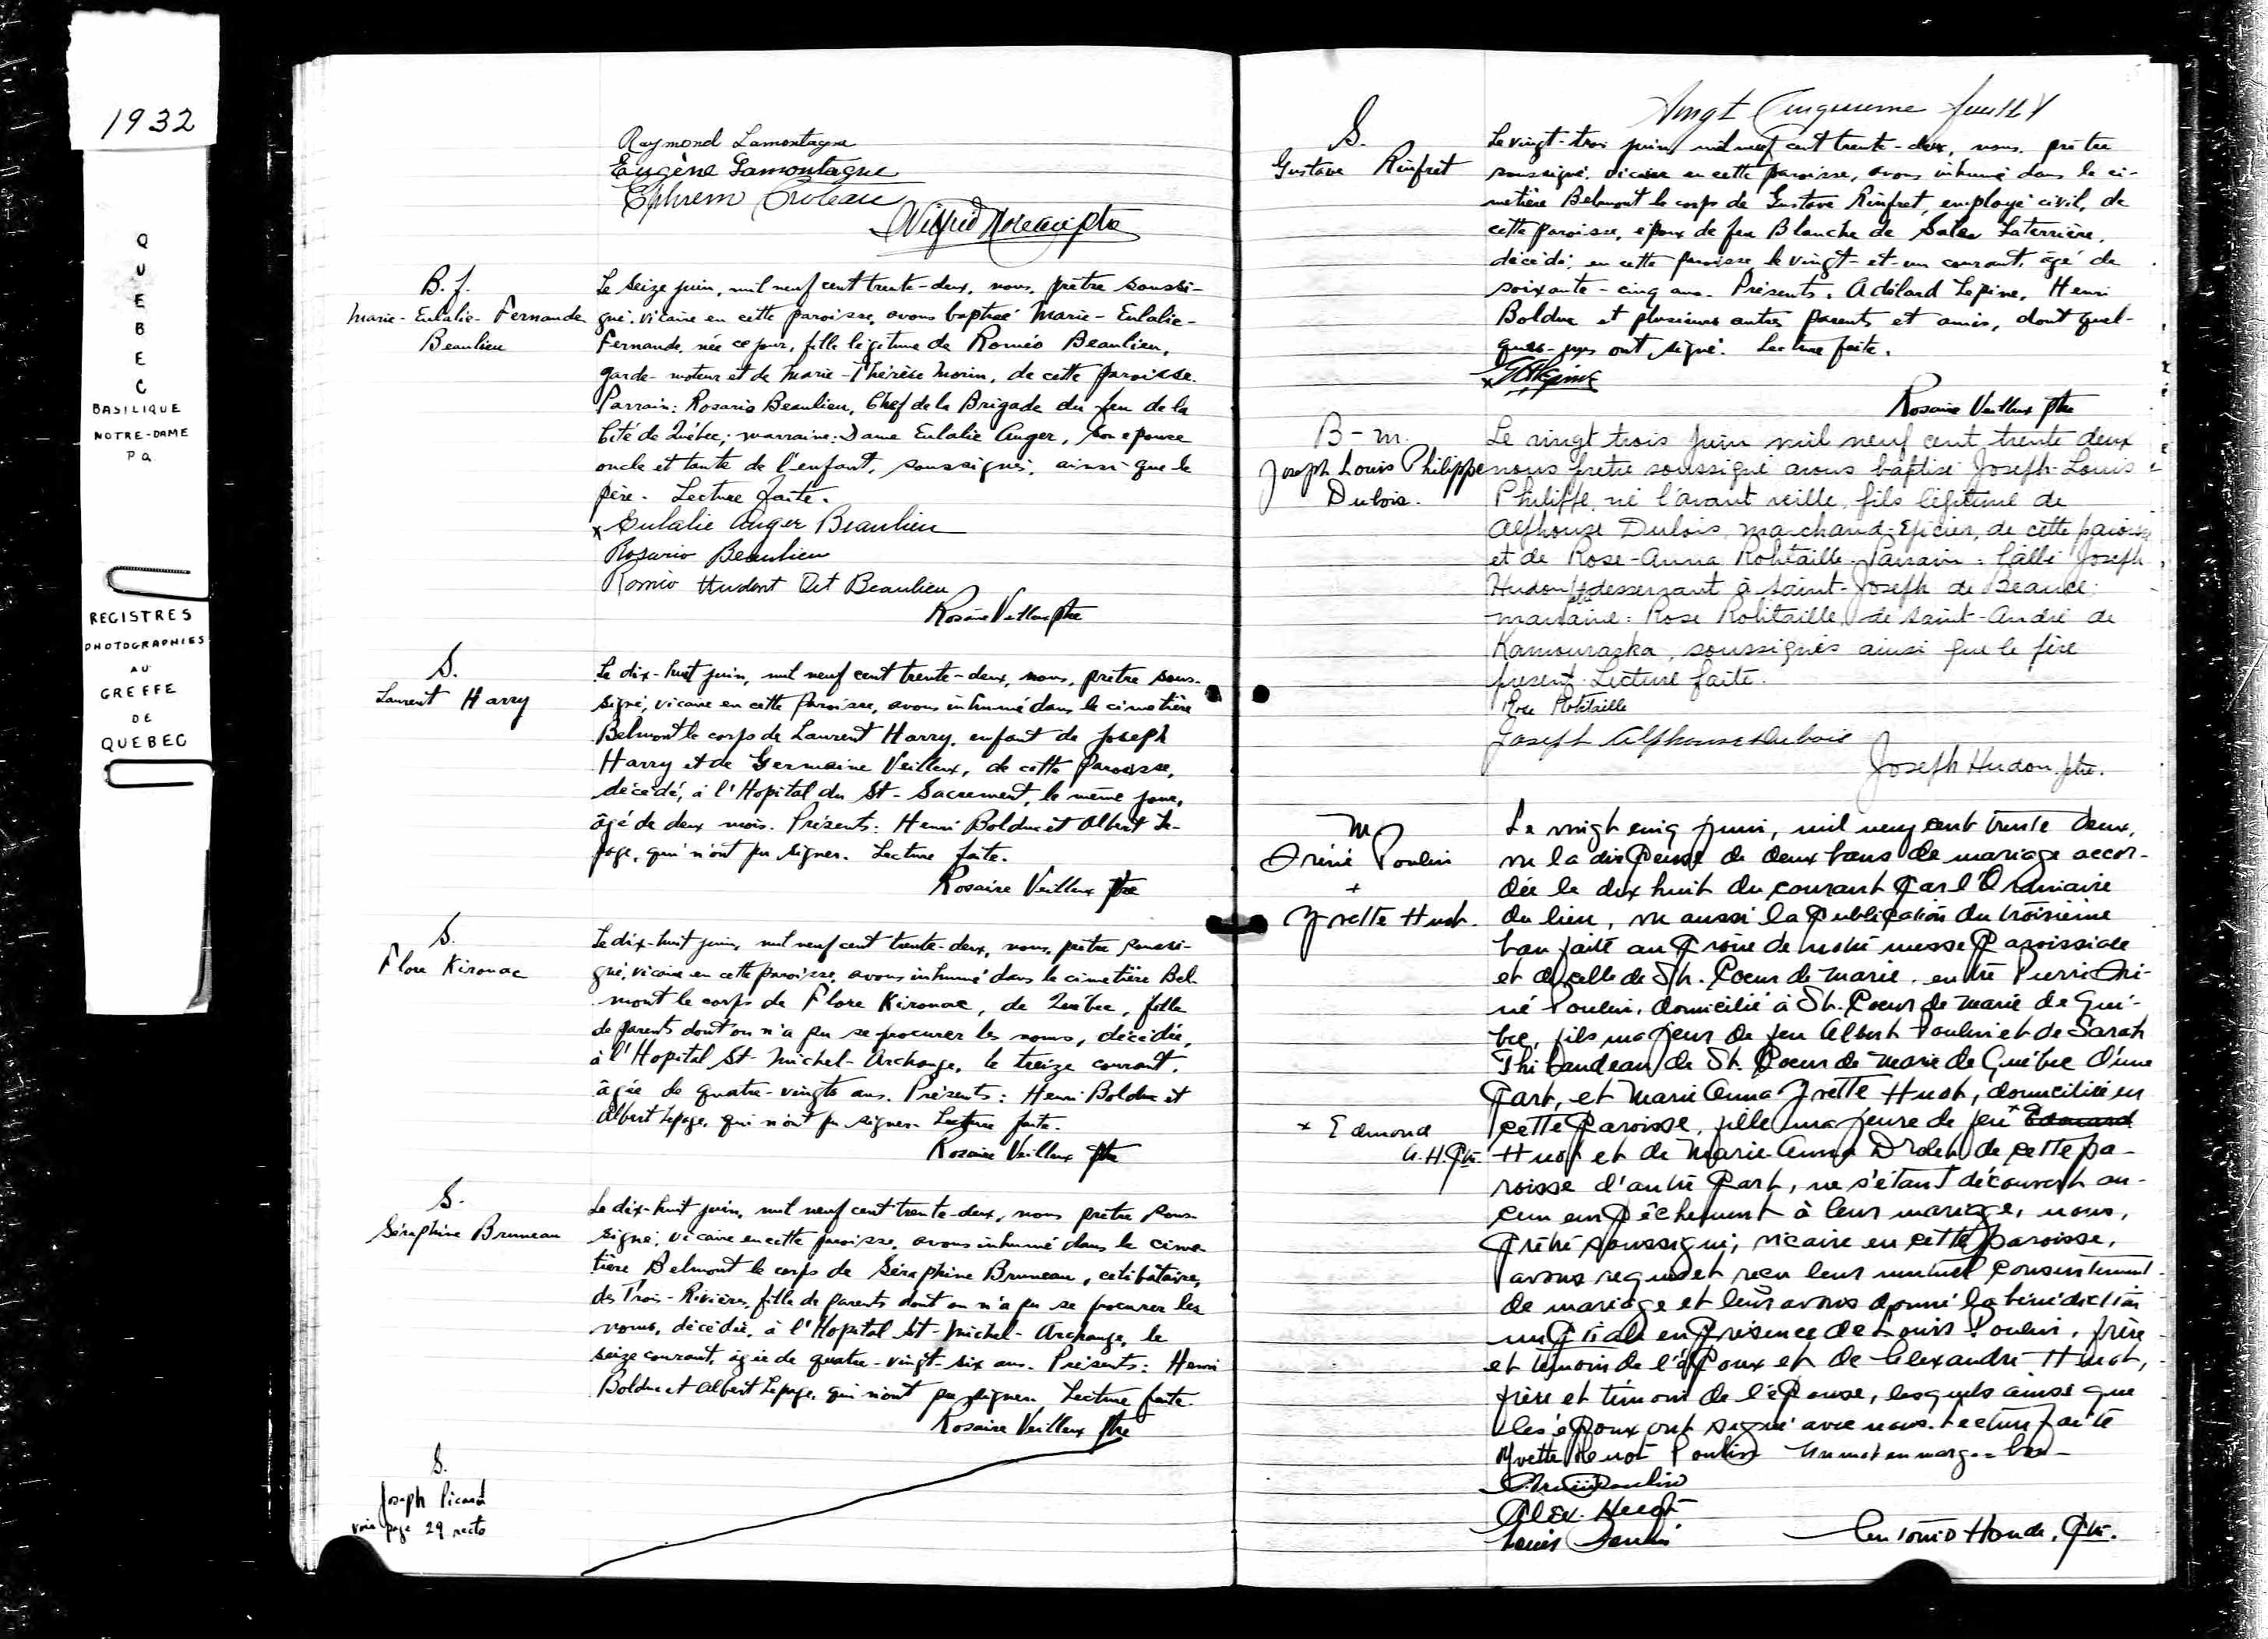 1932
QUEBEC
BASILIQUE
NOTRE-DAME
P Q
REGISTRES
PHOTOGRAPHIES
AU
GREFFE
DE
QUEBEC
Raymond Lamontagne
Eugène Lamontagne
Ephrem Croteau
Wilfrid ptre
B. f.
Marie-Eulalie-Fernande
Beaulieu
Le seize juin, mil neuf cent trente-deux, nous, prêtre soussi-
gné, vicaire en cette paroisse, avons baptisé Marie-Eulalie-
Fernande, née ce jour, fille légitime de Roméo Beaulieu,
garde-moteur et de Marie-Thérèse Morin, de cette paroisse.
Parrain: Rosario Beaulieu, Chef de la Brigade du feu de la
Cité de Québec; marraine: Dame Eulalie Auger, son épouse
oncle et tante de l'enfant, soussignés, ainsi que le
père. Lecture faite.
x Eulalie Auger Beaulieu
Rosario Beaulieu
Roméo Hudont Dit Beaulieu
Rosaire Veilleux ptre
S.
Laurent Harry
Le dix-huit juin, mil neuf cent trente-deux, nous, prêtre sous-
signé, vicaire en cette paroisse, avons inhumé dans le cimetière
Belmont le corps de Laurent Harry, enfant de Joseph
Harry et de Germaine Veilleux, de cette paroisse,
décédé, à l'Hopital du St-Sacrement, le même jour,
âgé de deux mois. Présents: Henri Bolduc et Albert Le-
page, qui n'ont pu signer. Lecture faite.
Rosaire Veilleux ptre
S.
Flore Kirouac
Le dix-huit juin, mil neuf cent trente-deux, nous, prêtre soussi-
gné, vicaire en cette paroisse, avons inhumé dans le cimetière Bel-
mont le corps de Flore Kirouac, de Québec, fille
de parents dont on n'a pu se procurer les noms, décédée,
à l'Hopital St-Michel-Archange, le treize courant,
âgée de quatre-vingts ans. Présents: Henri Bolduc et
Albert Lepage, qui n'ont pu signer. Lecture faite.
Rosaire Veilleux ptre
S.
Séraphine Bruneau
Le dix-huit juin, mil neuf cent trente-deux, nous prêtre sous-
signé, vicaire en cette paroisse, avons inhumé dans le cime-
tière Belmont le corps de Séraphine Bruneau, célibataire,
des Trois-Rivières, fille de parents dont on n'a pu se procurer les
noms, décédée, à l'Hopital St-Michel-Archange, le
seize courant, âgée de quatre-vingt-six ans. Présents: Henri
Bolduc et Albert Lepage, qui n'ont pu signer. Lecture faite.
Rosaire Veilleux ptre
S.
Joseph Picard
voir page 29 recto
Vingt Cinquieme feuillet
S.
Gustave Rinfret
Le vingt-trois juin, mil neuf cent trente-deux, nous, prêtre
soussigné, vicaire en cette paroisse, avons inhumé dans le ci-
metière Belmont le corps de Gustave Rinfret, employé civil, de
cette paroisse, époux de feu Blanche de Sales Laterrière,
décédé, en cette paroisse le vingt-et-un courant, âgé de
soixante-cinq ans. Présents: Adélard Lepine, Henri
Bolduc et plusieurs autres parents et amis, dont quel-
ques-uns ont signé. Lecture faite.
Rosaire Veilleux ptre
B-m.
Joseph Louis Philippe
Dubois.
Le vingt trois juin mil neuf cent trente deux
nous pretre soussigné avons baptisé Joseph-Louis
Philippe, né l'avant veille, fils légitime de
Alphonse Dubois, marchand-épicier, de cette paroisse
et de Rose-Anna Robitaille. Parrain: l'abbé Joseph
Hudon desservant à Saint-Joseph de Beauce;
marraine: Rose Robitaille, de Saint-André de
Kamouraska, soussignés ainsi que le père
présent. Lecture faite.
Rose Robitaille
Joseph Alphonse Dubois
Joseph Hudon ptre.
M
Iréné Poulin
+
Yvette Huot.
Le vingt cinq juin, mil neuf cent trente deux,
vu la dispense de deux bans de mariage accor-
dée le dix huit du courant par l'Ordinaire
du lieu, vu aussi la publication du troisième
ban faite au prône de notre messe paroissiale
et de celle de St. Coeur de Marie, entre Pierre Iré-
né Poulin, domicilié à St. Coeur de Marie de Qué-
bec, fils majeur de feu Albert Poulin et de Sarah
Thibaudeau de St. Coeur de Marie de Québec d'une
part, et Marie Anna Yvette Huot, domiciliée en
cette paroisse, fille majeure de feu x Edouard
x Edmond
A.H. ptr.
Huot et de Marie-Anna Drolet de cette pa-
roisse d'autre part, ne s'étant découvert au-
cun empêchement à leur mariage, nous,
prêtre soussigné, vicaire en cette paroisse,
avons requis et reçu leur mutuel consentement
de mariage et leur avons donné la bénédiction
nuptiale en présence de Louis Poulin, frère
et témoin de l'époux et de Alexandre Huot,
frère et témoin de l'épouse, lesquels ainsi que
les époux ont signé avec nous. Lecture faite
Yvette Huot Poulin Un mot en marge bon
Iréné Poulin
Alex. Huot
Louis Poulin
Antonio Houde, ptr.